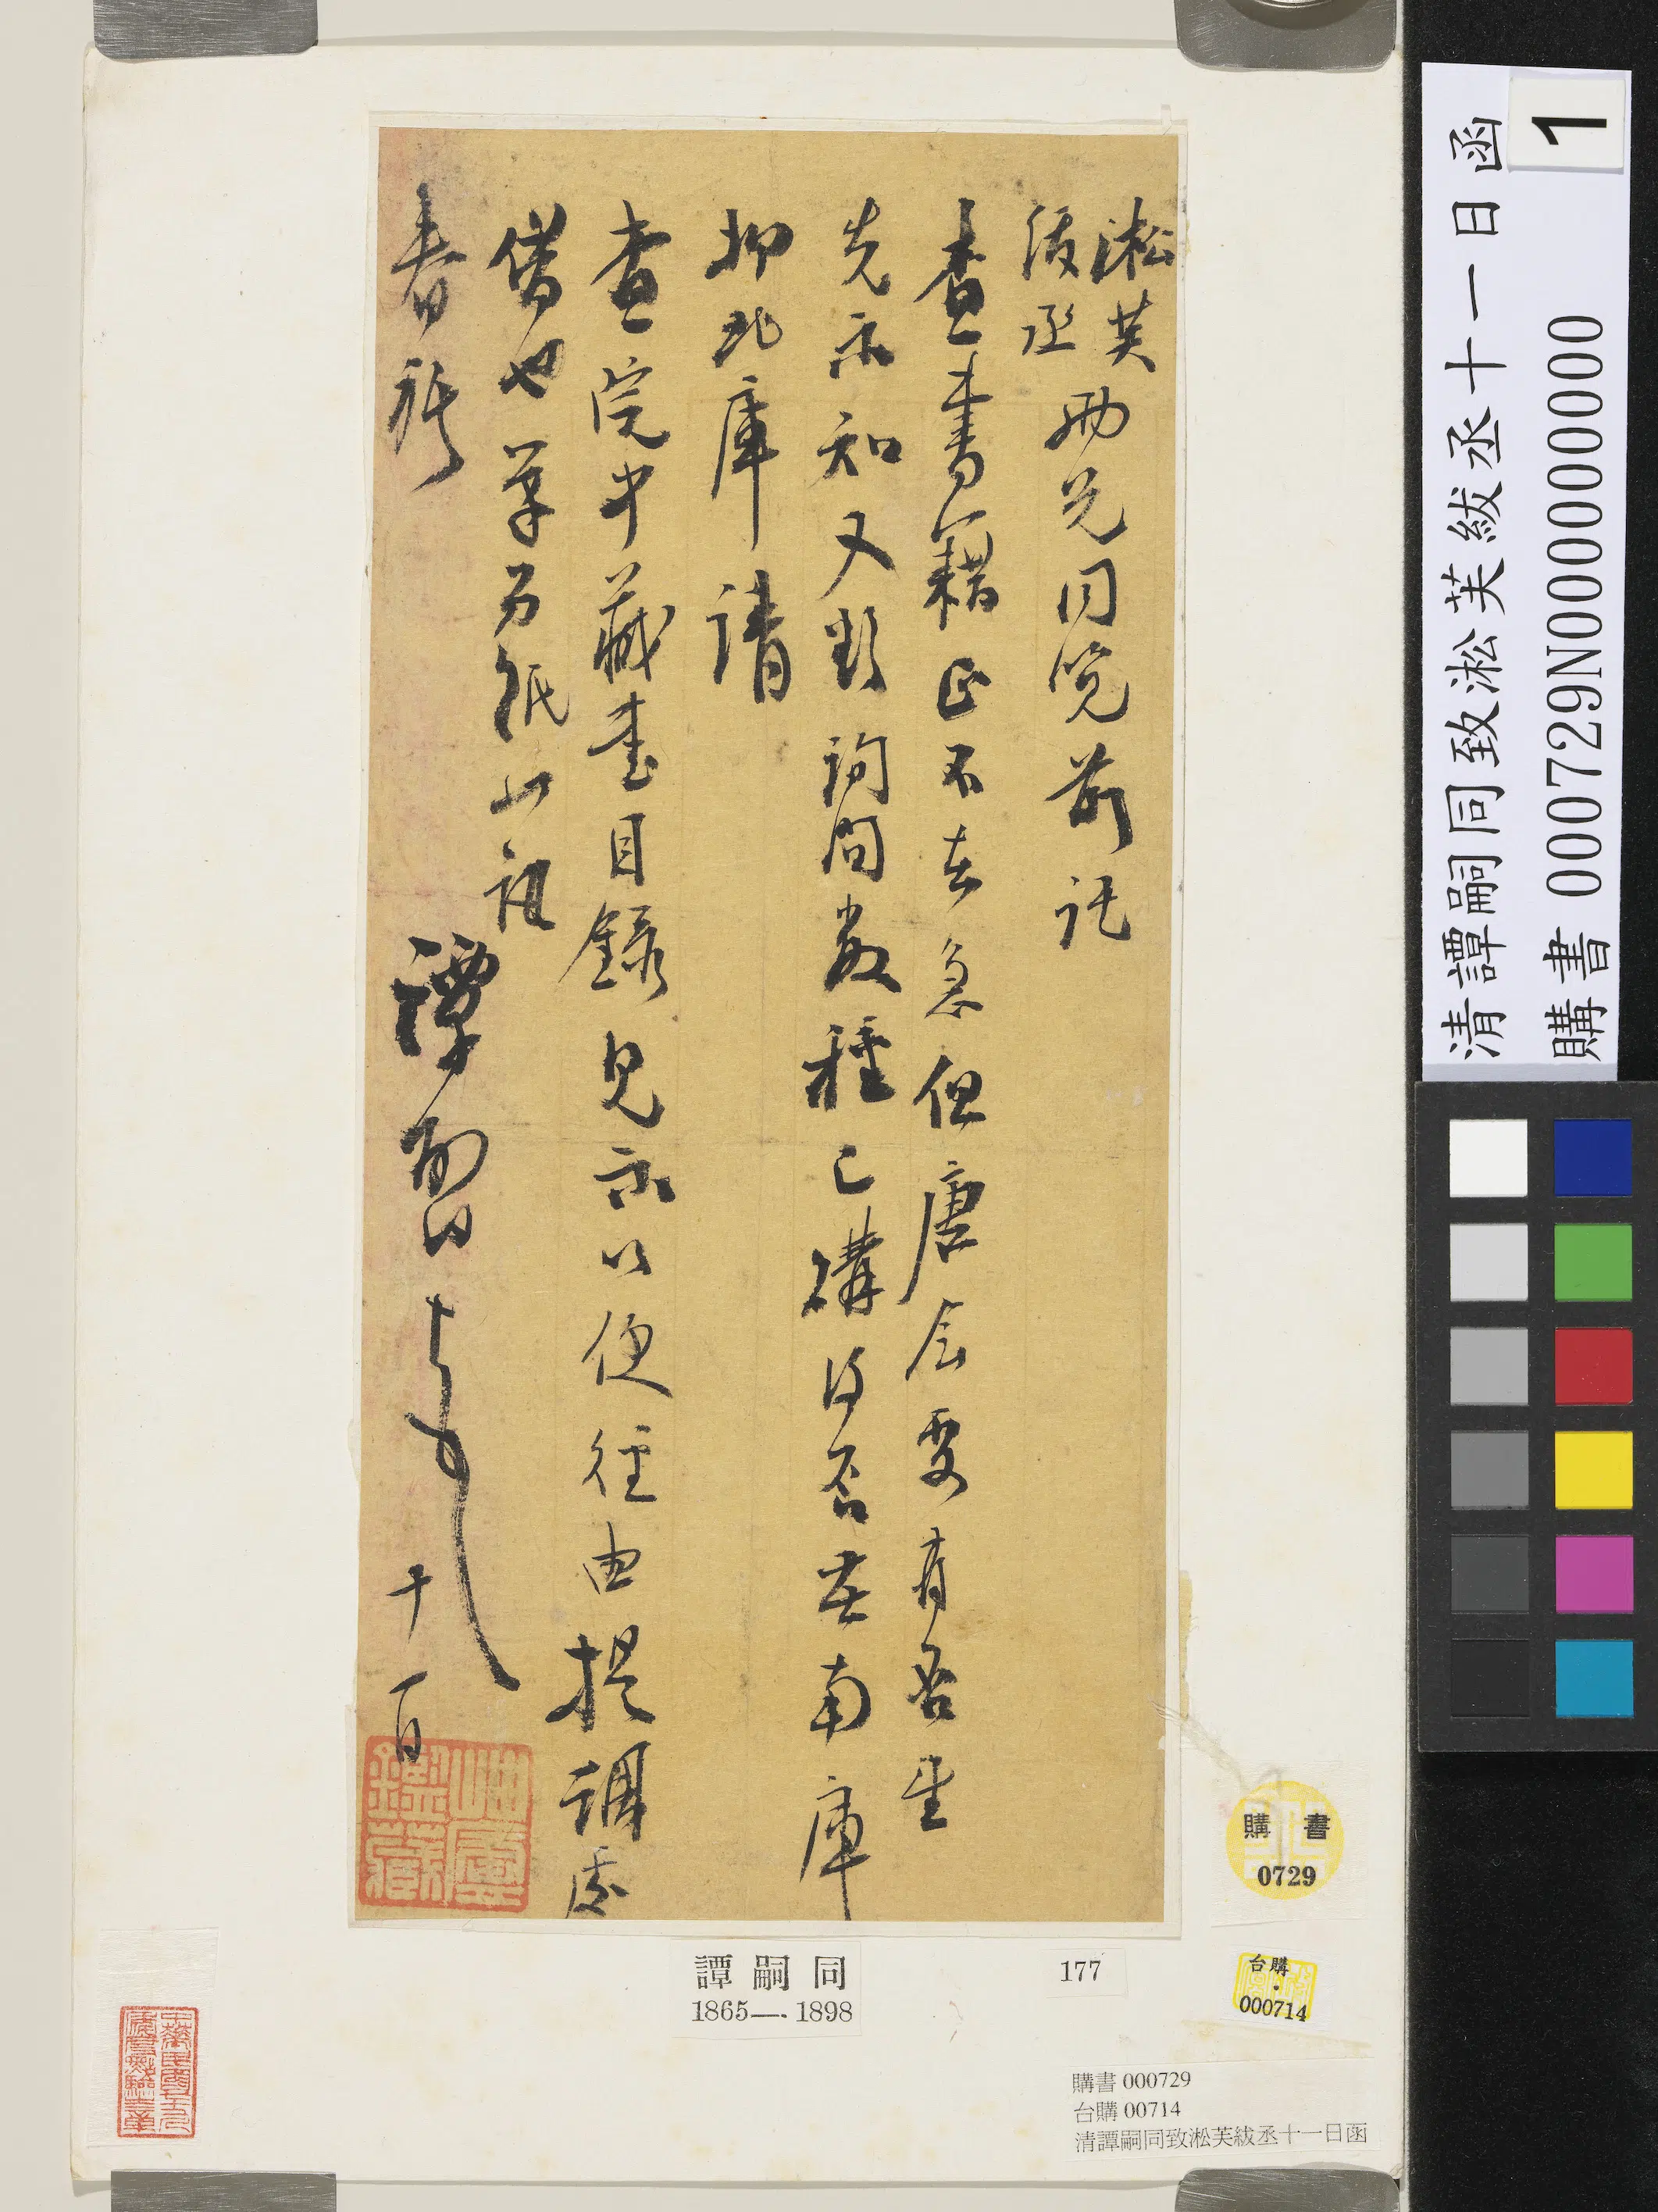 淞芙
紱丞
兩兄同覽前託
查書籍正不在急但唐会要有否望
先示知又詢問數種已購得否在南庫
抑北庫請
查院中藏書目錄見示以便徑由提調處
借也草另紙此
春祺 譚嗣同 十一日
譚嗣同
1865—1898
177
購書
0729
台購
000714
購書 000729
台購 00714
清譚嗣同致淞芙紱丞十一日函
清譚嗣同致淞芙紱丞十一日函
購書 000729N000000000
1